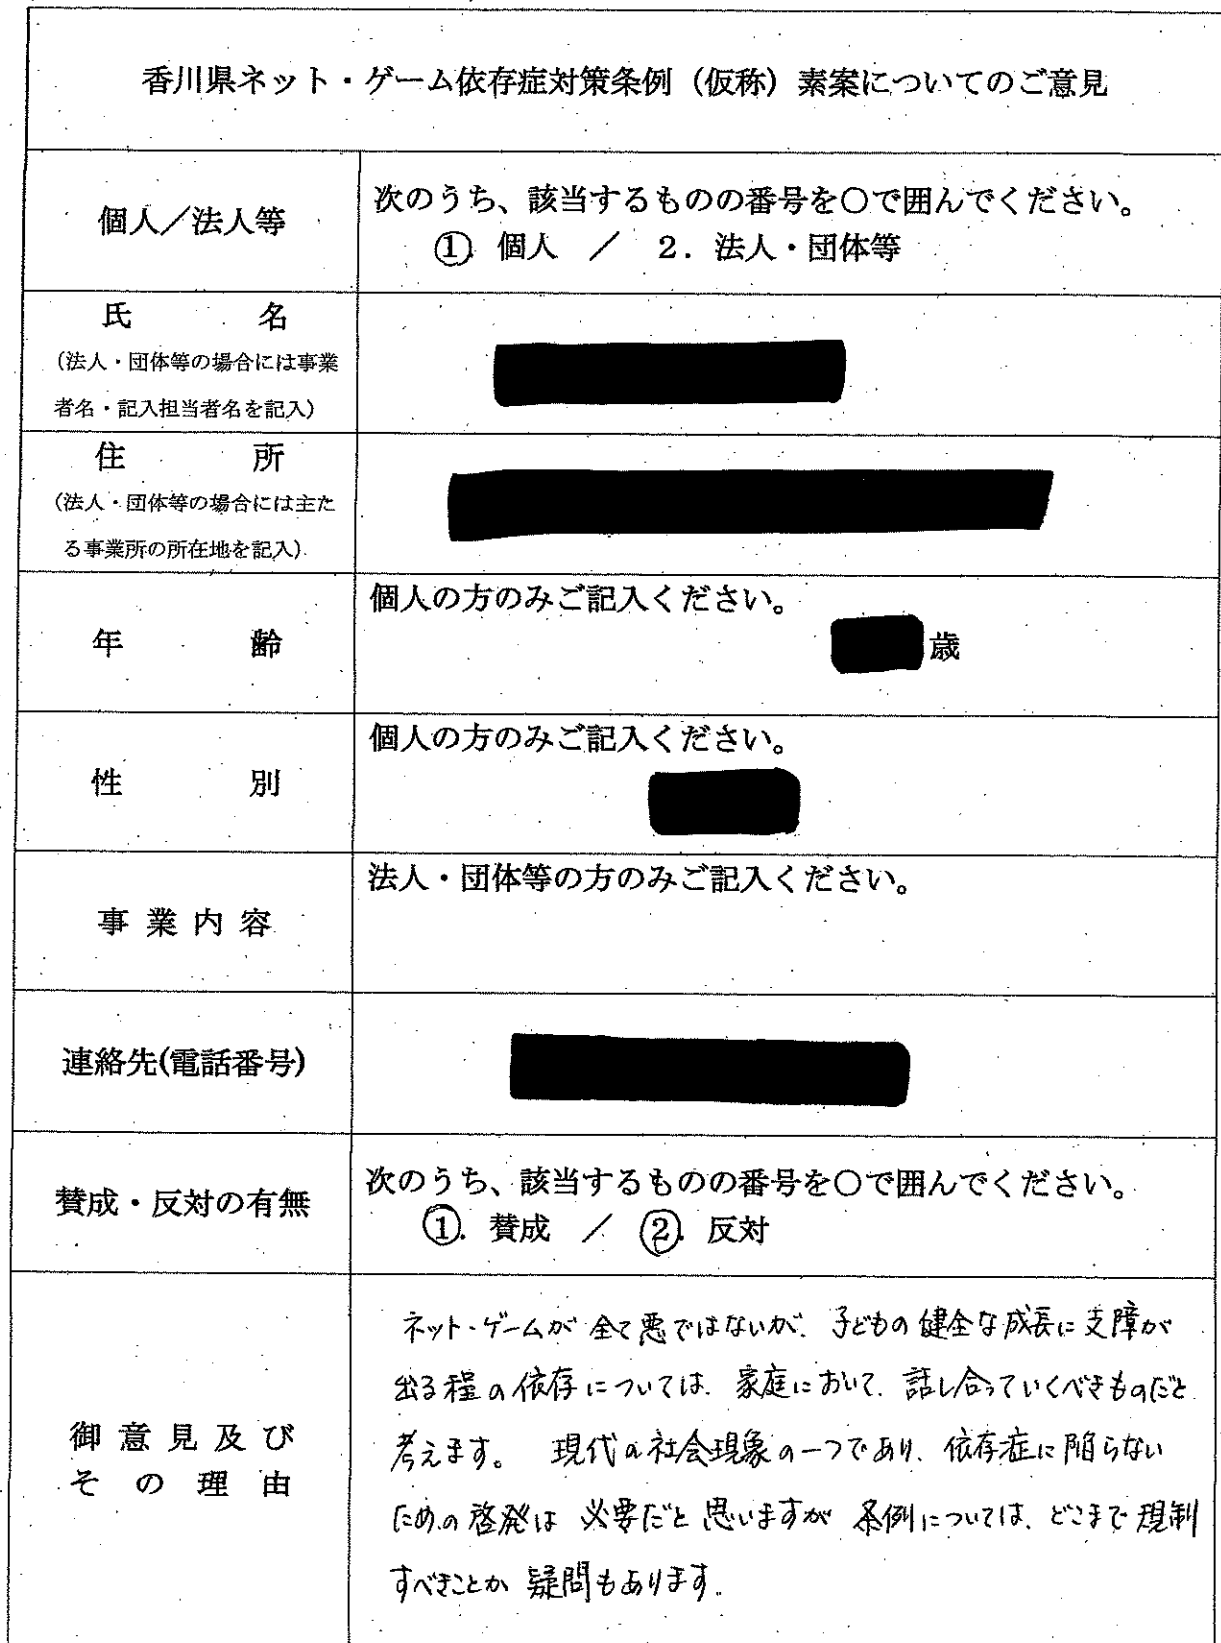 香川県ネット・ゲーム依存症対策条例（仮称）素案についてのご意見
個人／法人等
次のうち、該当するものの番号を○で囲んでください。
①. 個人 ／ 2. 法人・団体等
氏名
（法人・団体等の場合には事業
者名・記入担当者名を記入）
住所
（法人・団体等の場合には主た
る事業所の所在地を記入）
年齢
個人の方のみご記入ください。
歳
性別
個人の方のみご記入ください。
事業内容
法人・団体等の方のみご記入ください。
連絡先(電話番号)
賛成・反対の有無
次のうち、該当するものの番号を○で囲んでください。
①. 賛成 ／ ②. 反対
御意見及び
その理由
ネット・ゲームが全て悪ではないが、子どもの健全な成長に支障が
出る程の依存については、家庭において、話し合っていくべきものだと
考えます。 現代の社会現象の一つであり、依存症に陥らない
ための啓発は必要だと思いますが 条例については、どこまで規制
すべきことか疑問もあります。